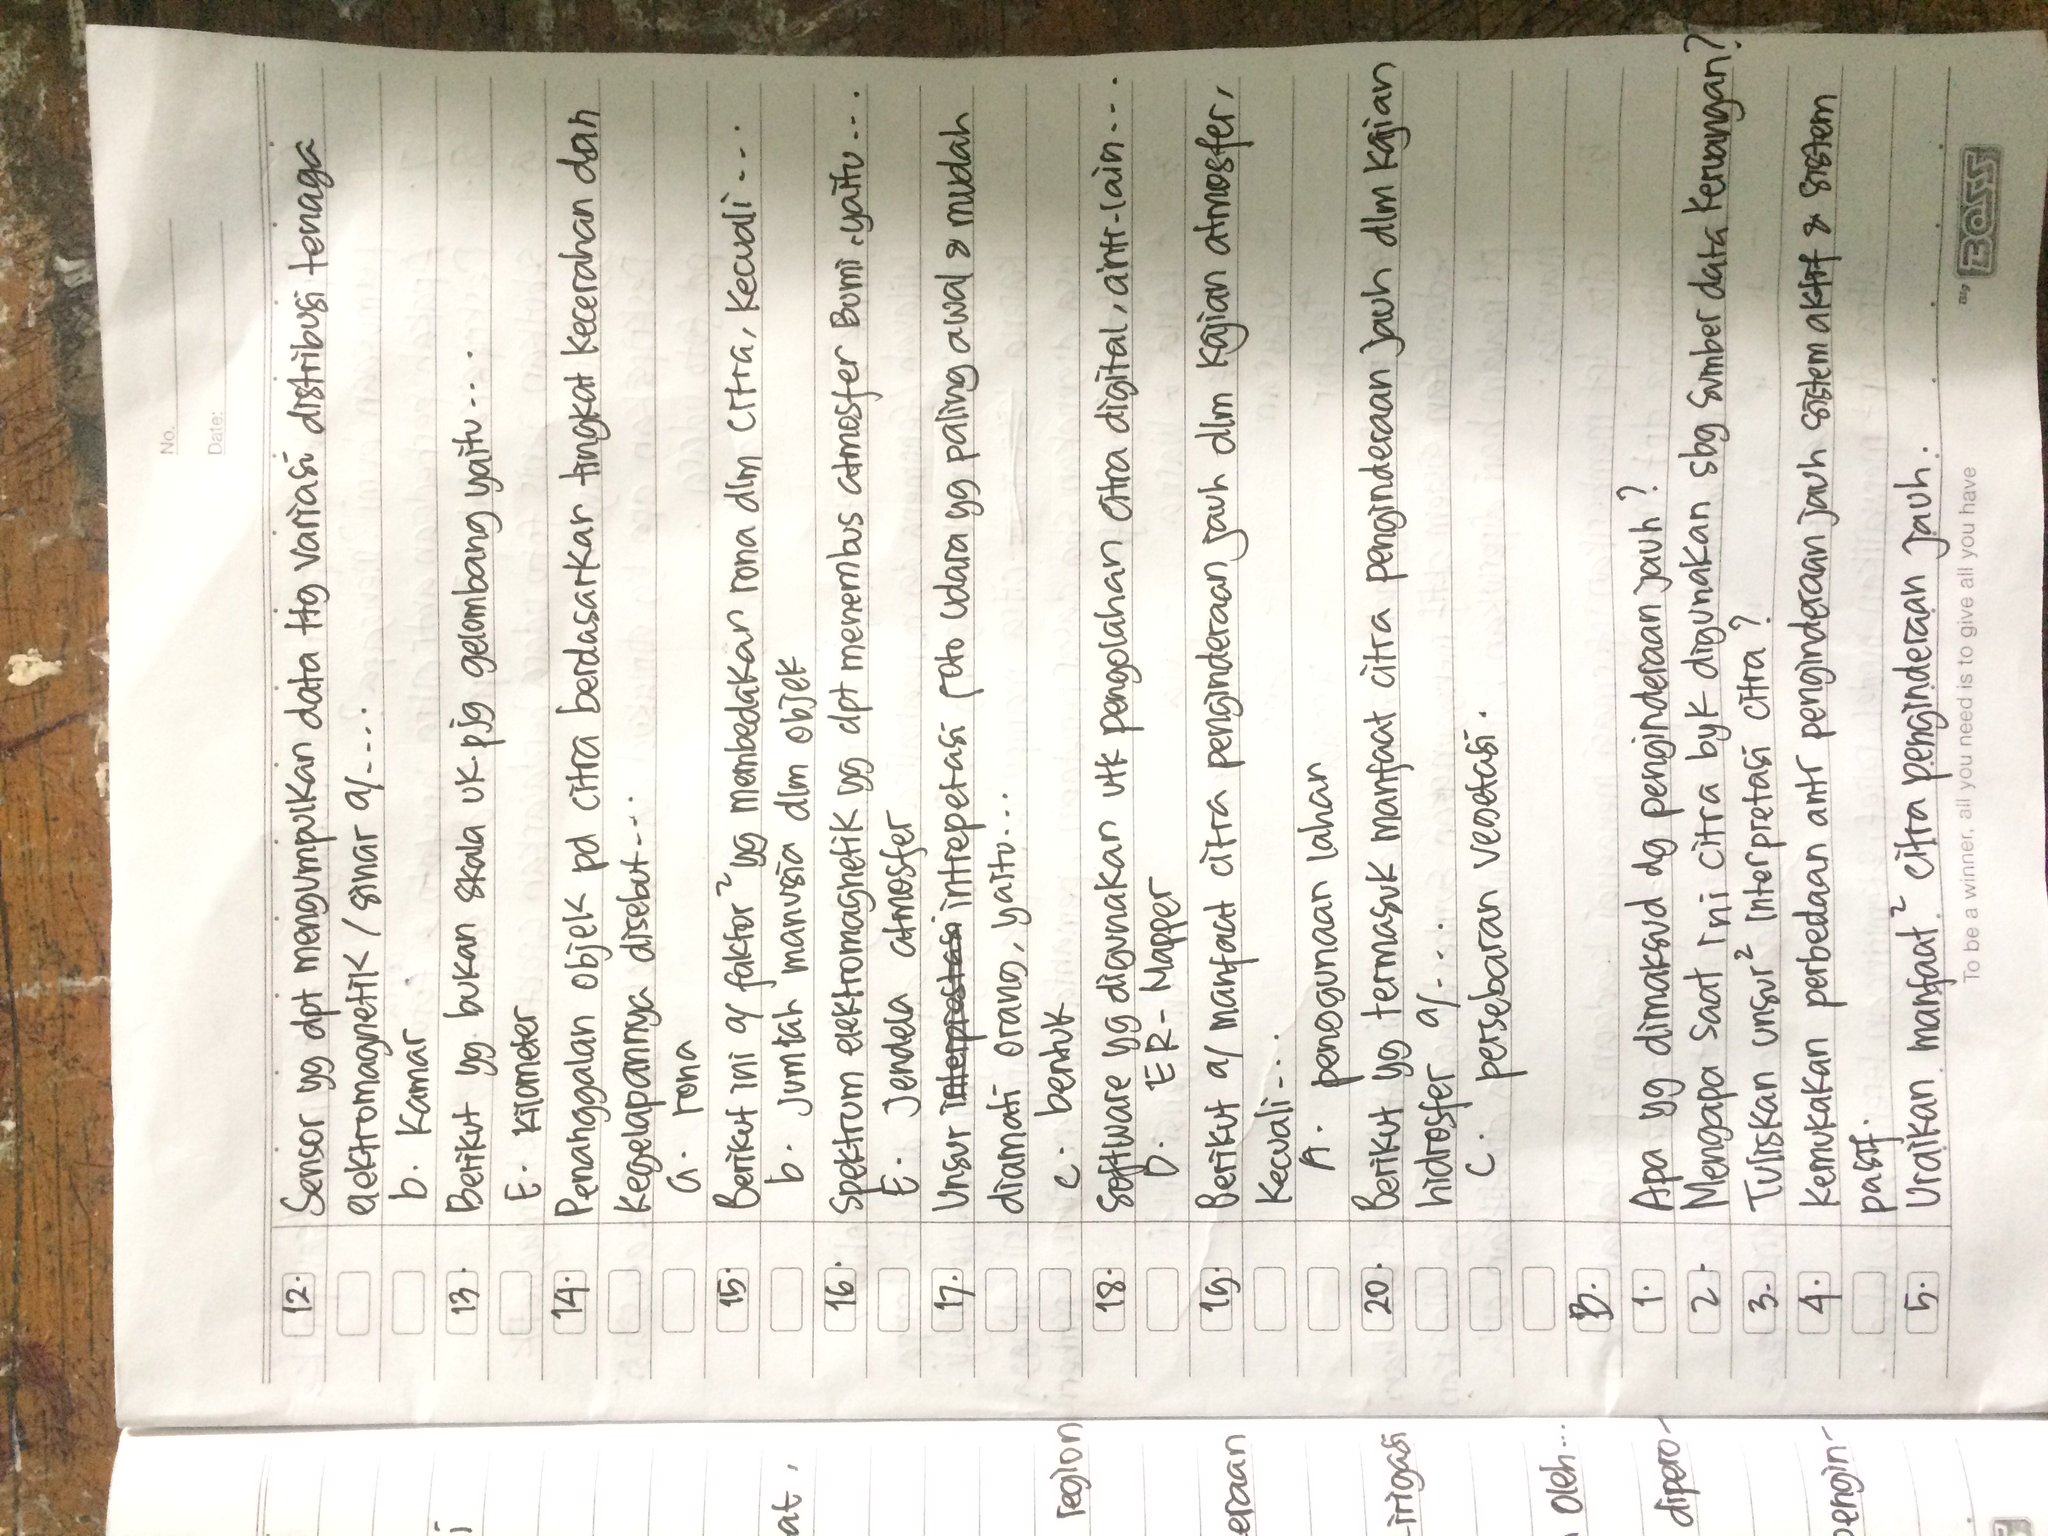 No.
Date:
12. Sensor yg dpt mengumpulkan data ttg variasi distribusi tenaga
elektromagnetik / sinar a/....
b. Kamar
13. Berikut yg bukan skala uk.pjg gelombang yaitu...
E. kilometer
14. Penanggalan objek pd citra berdasarkan tingkat kecerahan dan
kegelapannya disebut....
a. rona
15. Berikut ini a/ faktor² yg membedakan rona dlm citra, kecuali....
b. jumlah manusia dlm objek
16. Spektrum elektromagnetik yg dpt menembus atmosfer Bumi yaitu...
E. Jendela atmosfer
17. Unsur intrepetasi poto udara yg paling awal & mudah
diamati orang, yaitu...
c. bentuk
18. Software yg digunakan utk pengolahan citra digital, antr-lain...
D. ER-Mapper
19. Berikut a/ manfaat citra penginderaan jauh dlm kajian atmosfer,
kecuali...
A. penggunaan lahan
20. Berikut yg termasuk manfaat citra penginderaan jauh dlm kajian
hidrosfer a/....
C. persebaran vegetasi.
B.
1. Apa yg dimaksud dg penginderaan jauh?
2. Mengapa saat ini citra byk digunakan sbg sumber data keruangan?
3. Tuliskan unsur² interpretasi citra?
4. Kemukakan perbedaan antr penginderaan jauh sistem aktif & sistem
pasif.
5. Uraikan manfaat² citra penginderaan jauh.
To be a winner, all you need is to give all you have
Big BOSS
at,
region
eraan
-irigasi
oleh...
dipero-
pengin-